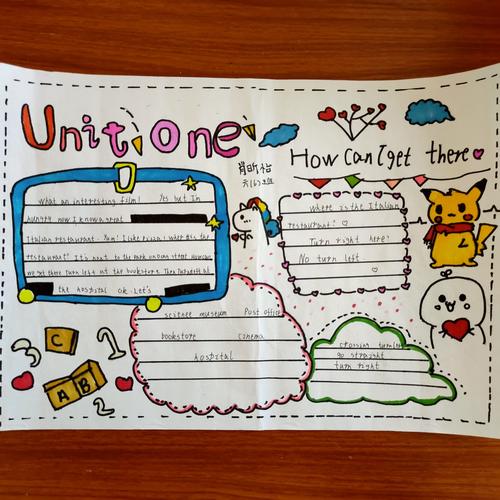 Unit one
How Can I get there
what an interesting film! Yes but Im
hungry now I know a great
Italian restaurant Yum! I like pizza! where is the
restaurant? It's next to the park on
turn left at the bookstore. Then
the hospital ok Let's
where is the Italian
restaurant?
Turn right here?
No turn left
museum Post office
bookstore cinema
hospital
crossing turn left
go straight
turn right
C
A B
3
1
2